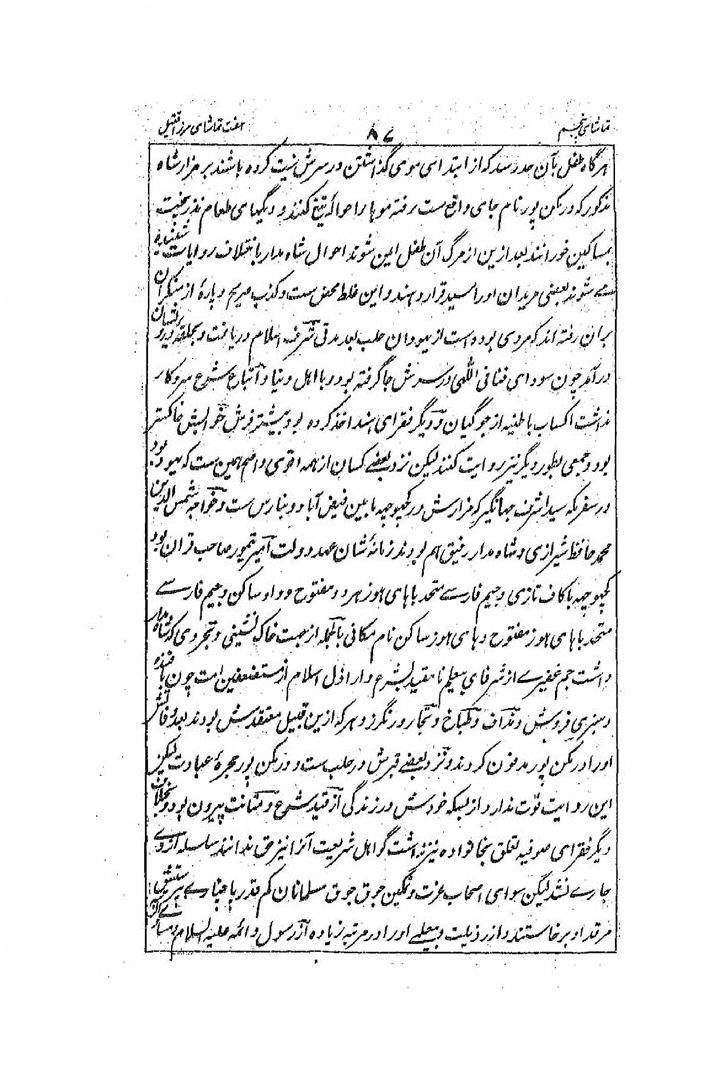 تماشای پنجم ۸۷ هفت تماشای مرزا قتیل
هرگاه طفل بآن حد رسد که از ابتدای موی گذاشتن در سرش نیت کرده باشند بر مزار شاه
مذکور که در مکن پور نام جای واقع ست رفته موها را حواله تیغ کنند و دیگهای طعام نذر پخته
بمساکین خورانند بعد ازین از مرگ آن طفل ایمن شوند احوال شاه مدار باختلاف روایات شنیده
مے شوند بعضی مریدان اورا سید قرار دهند و این غلط محض ست و کذب صریح و پارهٔ از منکران
بران رفته اند که مردی بوده است از یهودان حلب بعد مدتی شرف اسلام دریافت و بحلقه درویشان
درآمد چون سودای فنا فی اللهی در سرش جا گرفته بود و با اهل دنیا و اتباع شرع سروکار
نداشت اکساب باطنیه از جوگیان و دیگر فقرای هند اخذ کرده بود بیشتر فرش خوابش خاکستر
بود و جمعی بطور دیگر نیز روایت کنند لیکن نزد بعضے کسان از همه اقوی و اصح همین ست که یهود بود
در سفریکه سید اشرف جهانگیر که مزارش در کچهوچهه مابین فیض آباد و بنارس ست و خواجه شمس الدین
محمد حافظ شیرازی و شاه مدار رفیق هم بودند زمانهٔ شان عهد دولت امیر تیمور صاحب قران بود
کچهوچهه با کاف تازی و جیم فارسے متحد باهای هوز هر دو مفتوح و واو ساکن و جیم فارسے
متحد باهای هوز مفتوح و های هوز ساکن نام مکانی بالجمله از جهت خاک نشینی و تجردی که شاه مدار
داشت جم غفیرے از شرفای بیعلم نامقید بشرع و اراذل اسلام از مستضعفین امت چون
و سبزی فروش و نداف و طباخ و نجار و رنگرز و هرکه ازین قبیل معتقدش بودند بعد وفاتش
اورا در مکن پور مدفون کردند و نزد بعضے قبرش در حلب ست و در مکن پور حجرهٔ عبادت لیکن
این روایت قوت ندارد از بسکه خودش در زندگی از قید شرع و متانت بیرون بود و بخلاف
دیگر فقرای صوفیه تعلق بخانواده نیز نداشت گو اهل شریعت آنرا نیز حق ندانند سلسله از وے
جارے نشد لیکن سوای اصحاب عزت و تمکین جوق جوق مسلمانان کم قدر باجبارے
مرقد او برخاستند و از رذیلت و بیعلمے اورا در مرتبه زیاده از رسول و ائمه علیه السلام